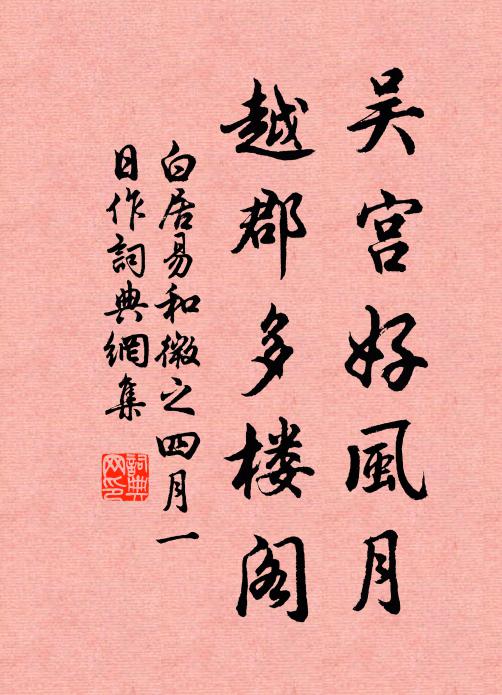 吴宫好風月
越郡多楼阁
白居易和微之四月一
日作詞典網集
詞典
网印